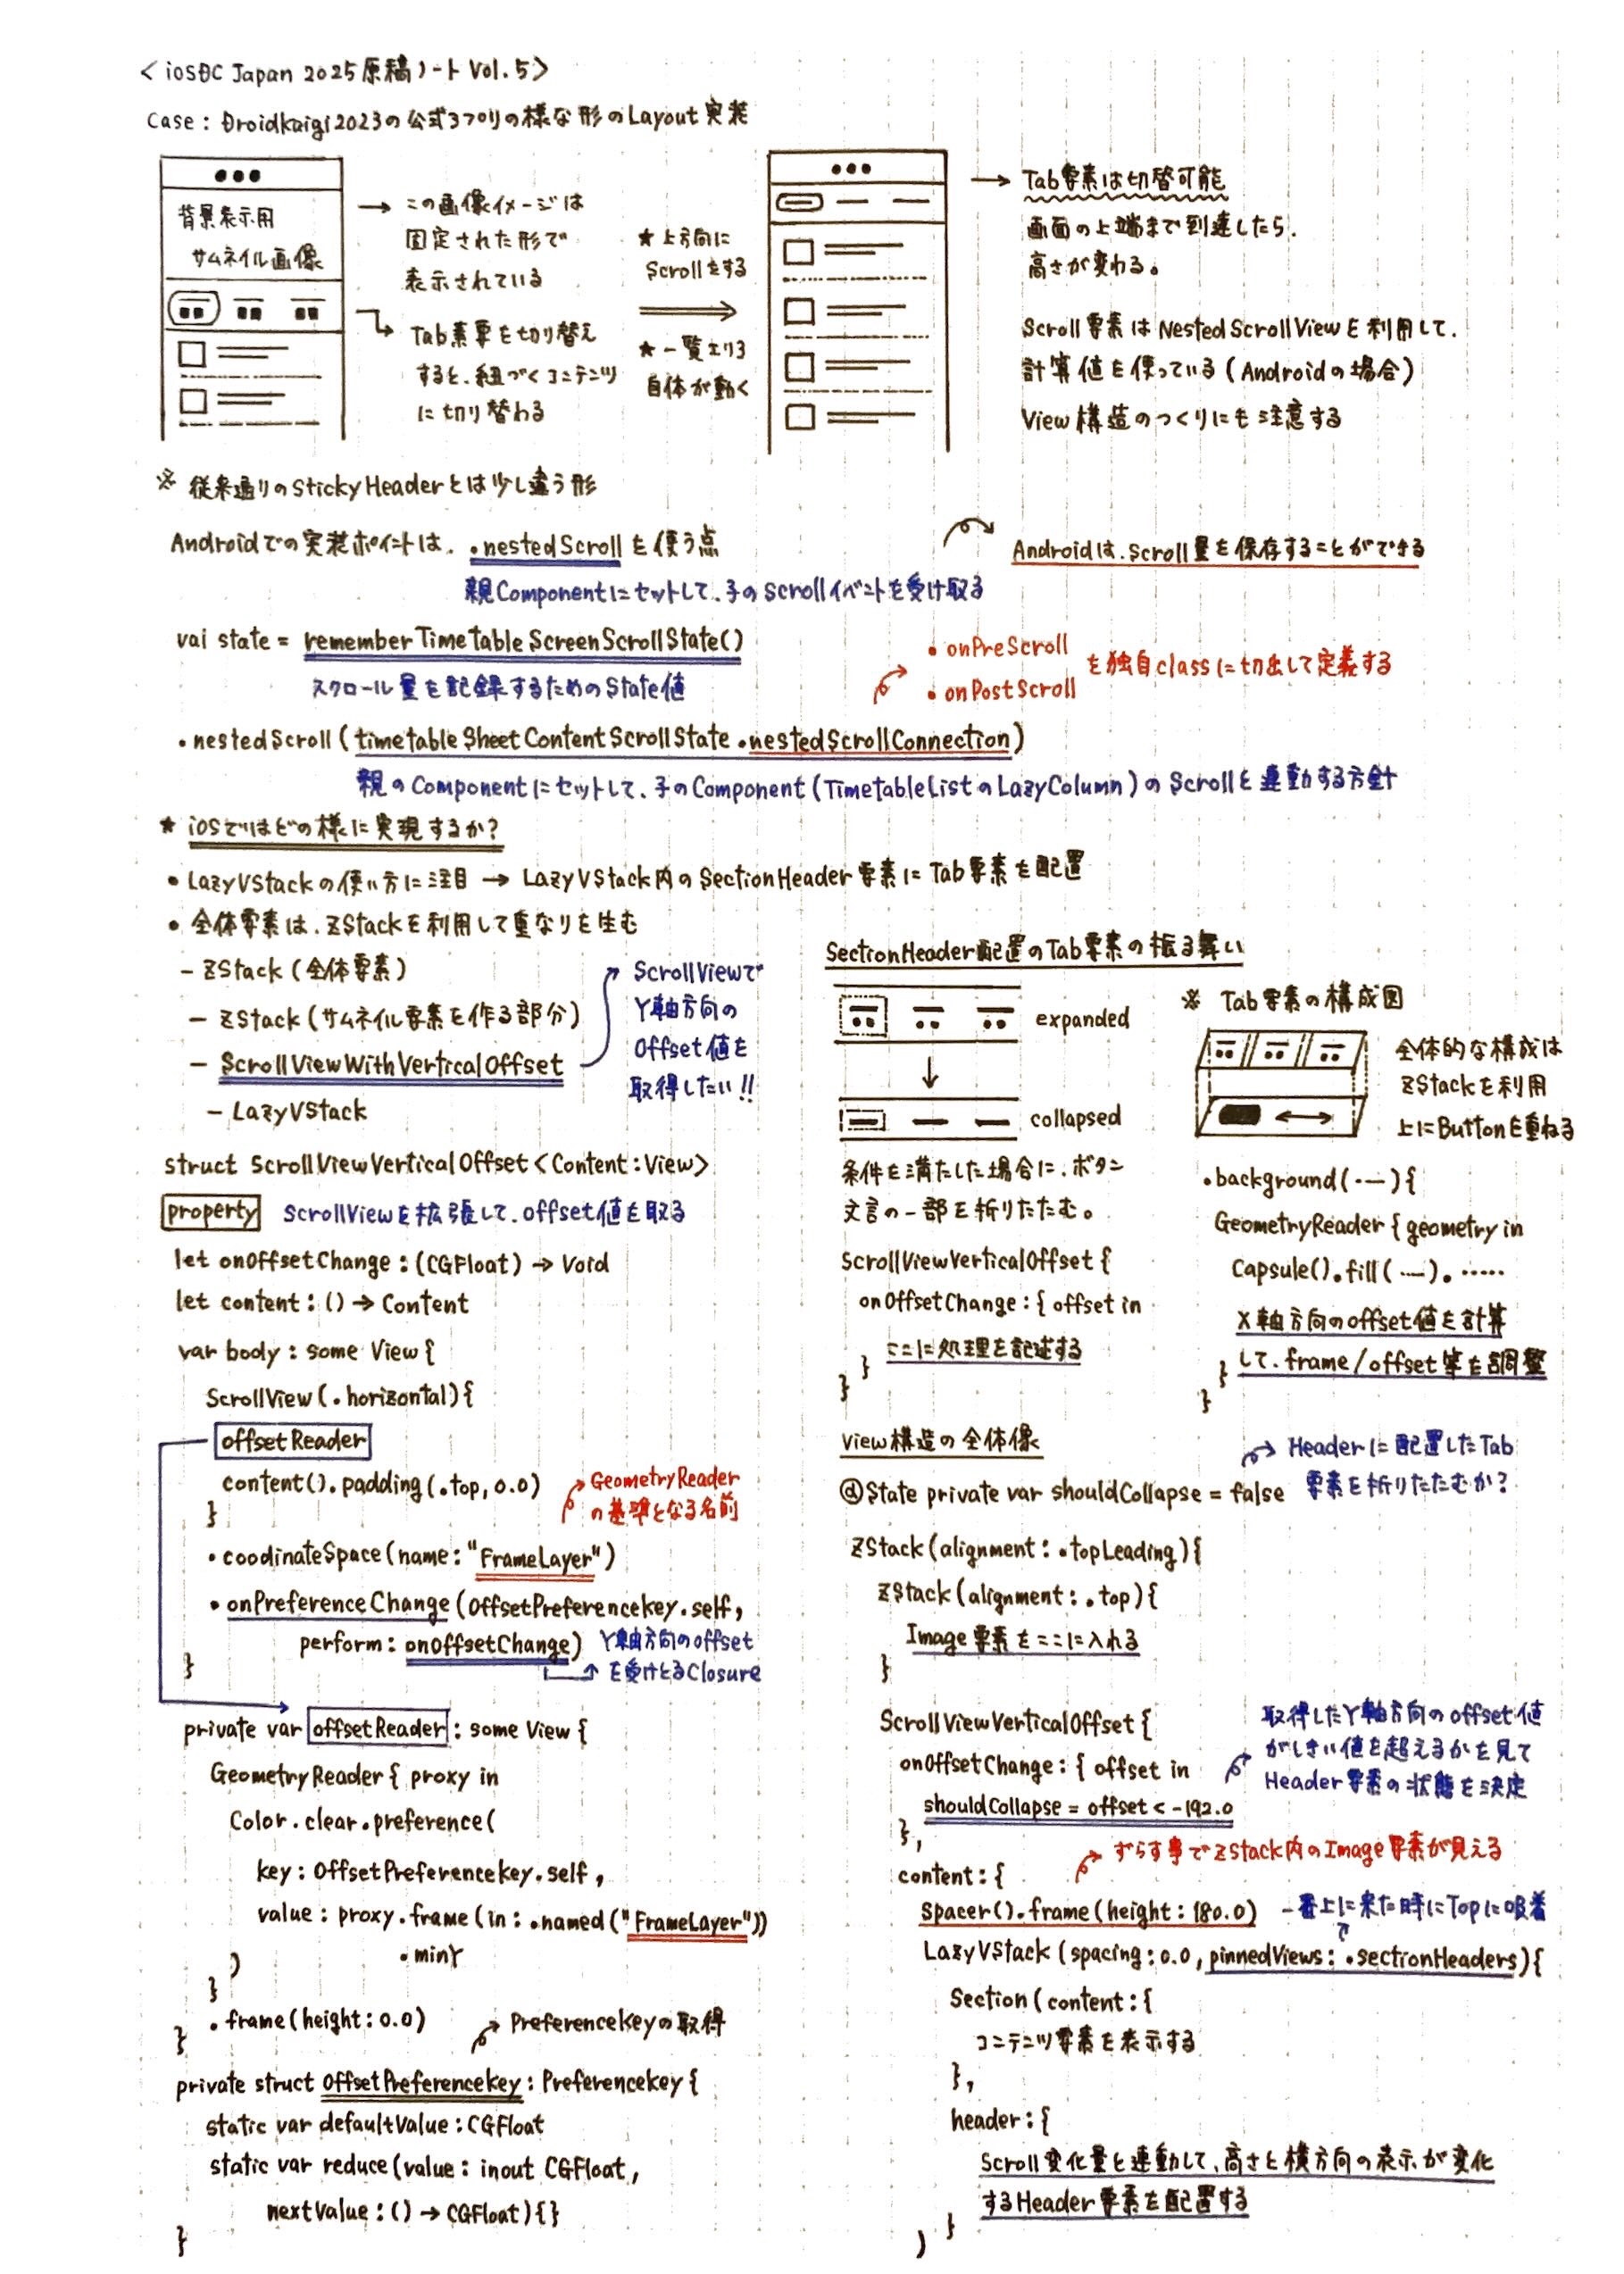 <iOSDC Japan 2025原稿ノート Vol.5>
Case: DroidKaigi2023の公式アプリの様な形のLayout実装
背景表示用
サムネイル画像
→ この画像イメージは
固定された形で
表示されている
Tab要素を切り替え
すると、紐づくコンテンツ
に切り替わる
★ 上方向に
Scrollをする
★ 一覧エリア
自体が動く
→ Tab要素は切替可能
画面の上端まで到達したら、
高さが変わる。
Scroll要素はNestedScrollViewを利用して、
計算値を使っている(Androidの場合)
View構造のつくりにも注意する
※ 従来通りのStickyHeaderとは少し違う形
Androidでの実装ポイントは、.nestedScrollを使う点
親Componentにセットして、子のScrollイベントを受け取る
Androidは、Scroll量を保存することができる
val state = rememberTimetableScreenScrollState()
スクロール量を記録するためのState値
• onPreScroll
• onPostScroll
を独自classに切出して定義する
.nestedScroll(timetableSheetContentScrollState.nestedScrollConnection)
親のComponentにセットして、子のComponent(TimetableListのLazyColumn)のScrollと連動する方針
★ iOSではどの様に実現するか?
• LazyVStackの使い方に注目 → LazyVStack内のSectionHeader要素にTab要素を配置
• 全体要素は、ZStackを利用して重なりを生む
- ZStack(全体要素)
- ZStack(サムネイル要素を作る部分)
- ScrollViewWithVerticalOffset
- LazyVStack
ScrollViewで
Y軸方向の
Offset値を
取得したい!!
struct ScrollViewVerticalOffset<Content:View>
property ScrollViewを拡張して、offset値を取る
let onOffsetChange:(CGFloat)→Void
let content:()→Content
var body: some View{
ScrollView(.horizontal){
offsetReader
content().padding(.top,0.0)
}
GeometryReader
の基準となる名前
.coodinateSpace(name:"FrameLayer")
.onPreferenceChange(OffsetPreferenceKey.self,
perform: onOffsetChange)
}
Y軸方向のoffset
を受けとるClosure
private var offsetReader: some View{
GeometryReader{ proxy in
Color.clear.preference(
key: OffsetPreferenceKey.self,
value: proxy.frame(in: .named("FrameLayer"))
.minY
)
}
.frame(height:0.0)
}
PreferenceKeyの取得
private struct OffsetPreferenceKey: PreferenceKey{
static var defaultValue:CGFloat
static var reduce(value: inout CGFloat,
nextValue:()→CGFloat){}
}
SectionHeader配置のTab要素の振る舞い
expanded
collapsed
条件を満たした場合に、ボタン
文言の一部を折りたたむ。
ScrollViewVerticalOffset{
onOffsetChange:{ offset in
ここに処理を記述する
}
}
※ Tab要素の構成図
全体的な構成は
ZStackを利用
上にButtonを重ねる
.background(・―){
GeometryReader{ geometry in
Capsule().fill(―).・・・・・
X軸方向のoffset値を計算
して、frame/offset等を調整
}
}
View構造の全体像
Headerに配置したTab
要素を折りたたむか?
@State private var shouldCollapse = false
ZStack(alignment: .topLeading){
ZStack(alignment: .top){
Image要素をここに入れる
}
ScrollViewVerticalOffset{
onOffsetChange:{ offset in
shouldCollapse = offset < -192.0
},
取得したY軸方向のoffset値
がしきい値を超えるかを見て
Header要素の状態を決定
ずらす事でZStack内のImage要素が見える
content:{
Spacer().frame(height:180.0)
一番上に来た時にTopに吸着
LazyVStack(spacing:0.0, pinnedViews: .sectionHeaders){
Section(content:{
コンテンツ要素を表示する
},
header:{
Scroll変化量と連動して、高さと横方向の表示が変化
するHeader要素を配置する
}
)